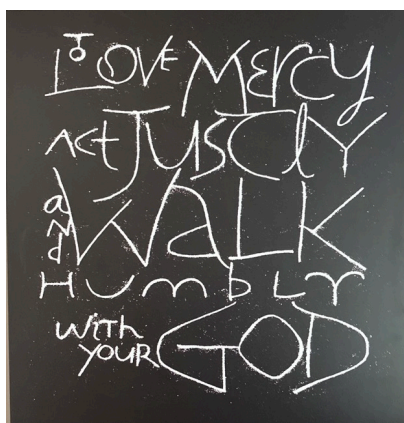 To Love Mercy
Act Justly
and Walk
Humbly
with
your God